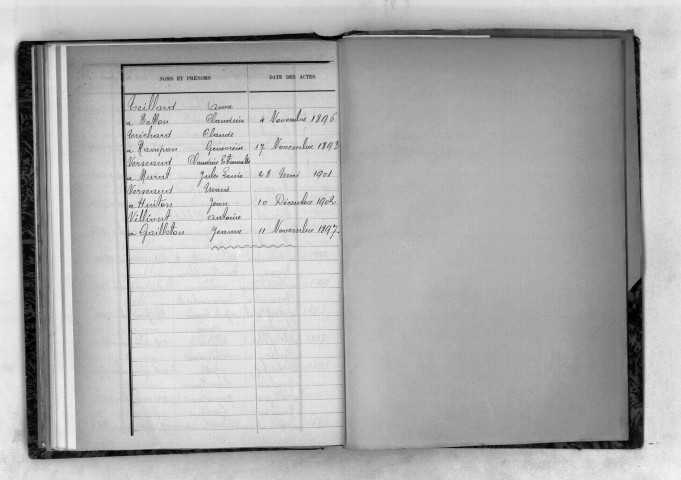 NOMS ET PRÉNOMS DATE DES ACTES
Teillard Anne
a Botton Claudius 4 Novembre 1896.
Trichard Claude
a Rampon Geneviève 17 Novembre 1893
Verseaud Claudine Etiennette
a Murat Jules Louis 28 Mai 1901.
Verseaud Marie
a Huiton Jean 10 Décembre 1902.
Villiont Antoine
a Gailleton Jeanne 11 Novembre 1897.